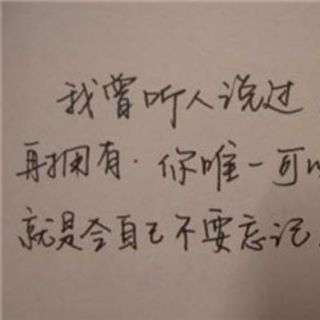 我曾听人说过
再拥有·你唯一可以
就是令自己不要忘记